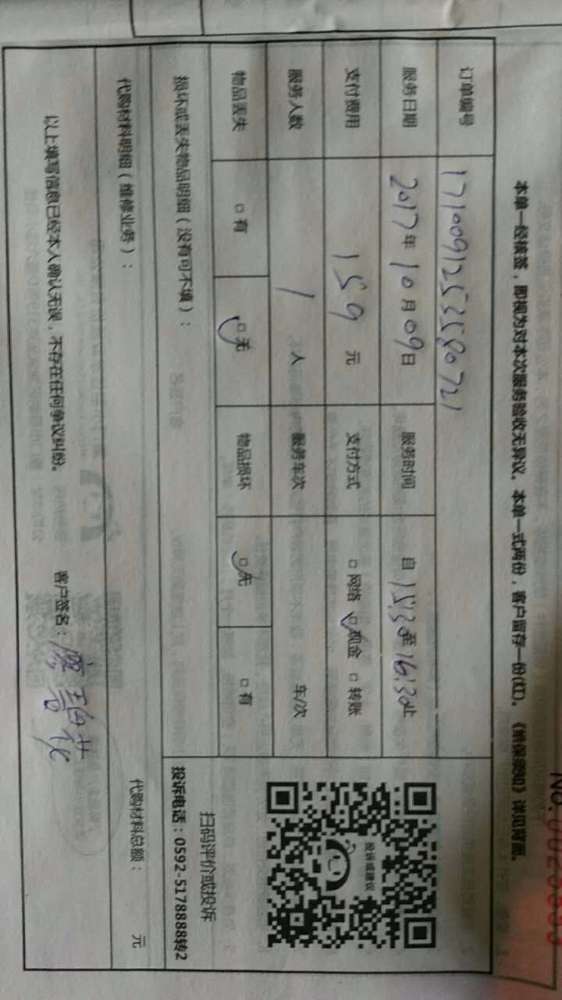 本单一经核签，即视为对本次服务验收无异议。本单一式两份，客户留存一份(红)。《纳保须知》详见背面。
订单编号 17100912535580721
服务日期 2017年10月09日 服务时间 自15:30至16:30止
支付费用 159元 支付方式 □网络 □现金 □转账
服务人数 1人 服务车次 车/次
物品丢失 □有 □无 物品损坏 □无 □有
投诉或建议
扫码评价或投诉
投诉电话：0592-5178888转2
损坏或丢失物品明细（没有可不填）：
代购材料明细（维修业务）： 代购材料总额： 元
以上填写信息已经本人确认无误，不存在任何争议纠纷。
客户签名：